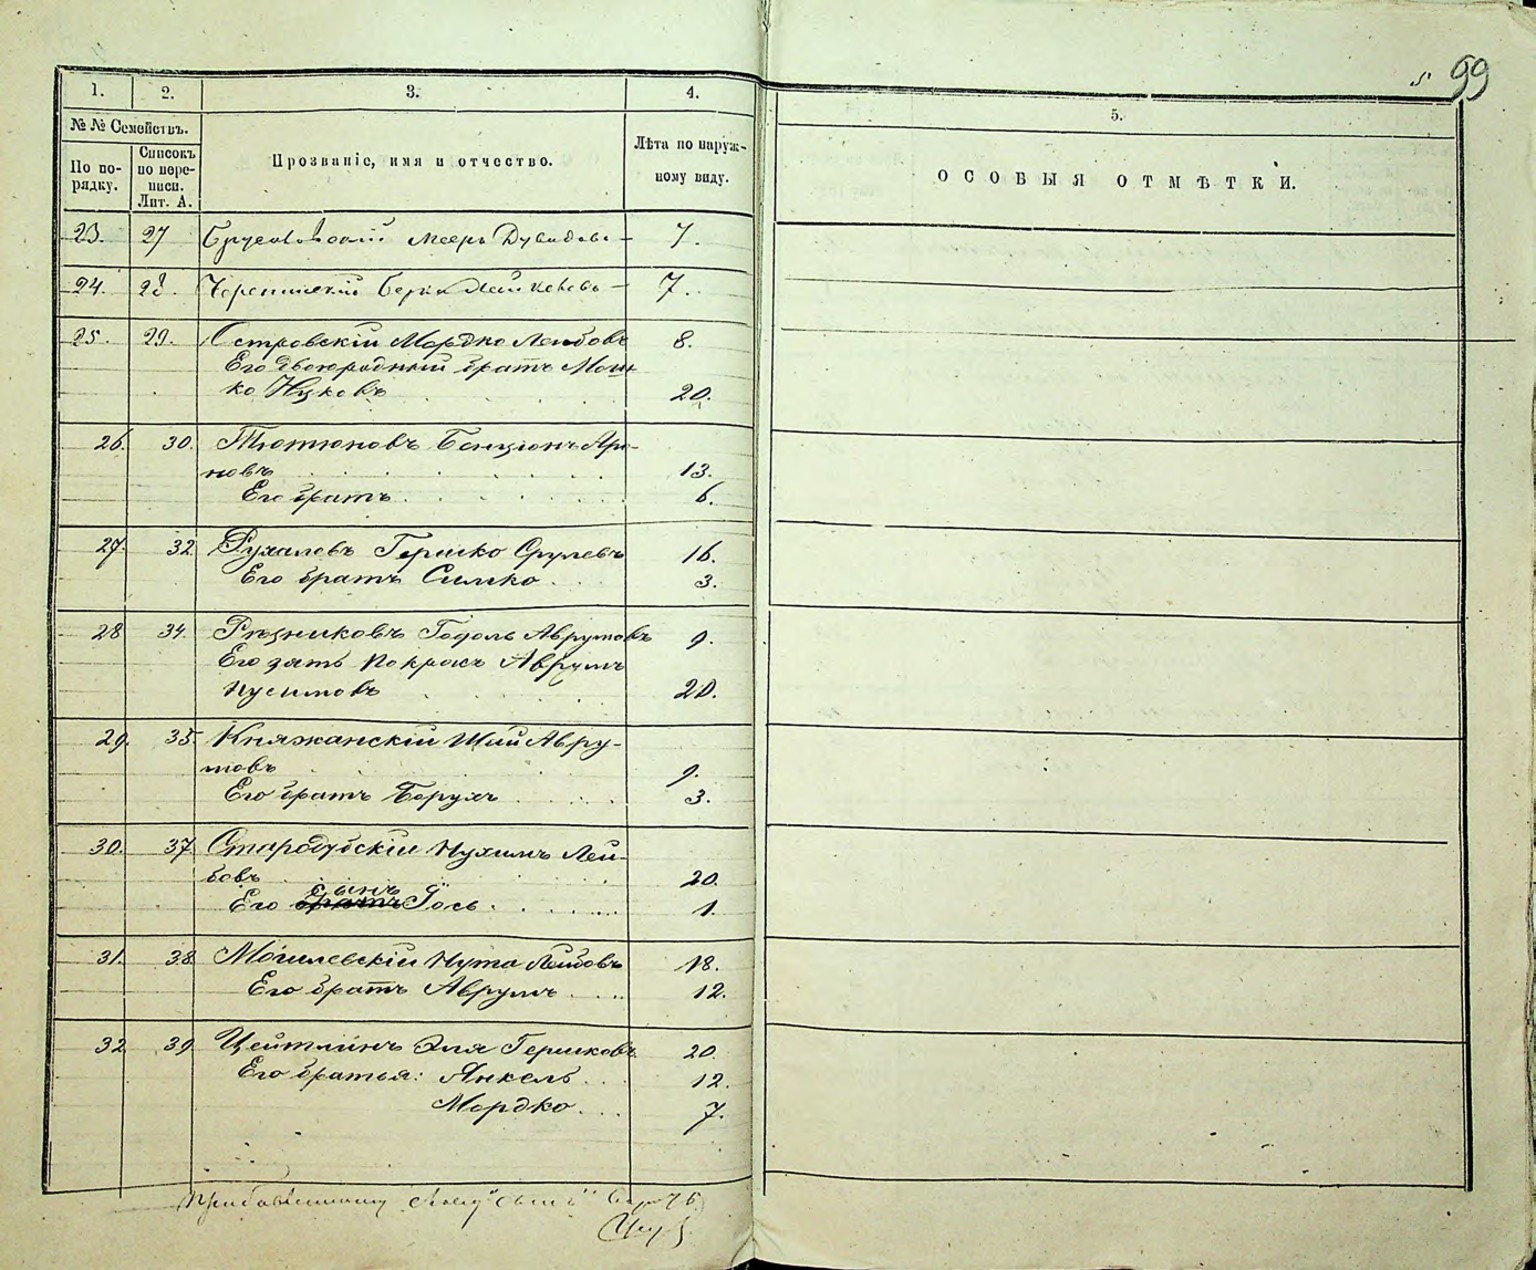 5 99
1. 2. 3. 4. 5.
№ № Семействъ.
По по-
рядку.
Списокъ
по пере-
писи.
Лит. А.
Прозваніе, имя и отчество.
Лѣта по наруж-
ному виду.
ОСОБЫЯ ОТМѢТКИ.
23. 27 Мееръ Дувидовъ 7.
24. 28. Берка 7.
25. 29. Островскій Мордко Лейбовъ 8.
Его двоюродный братъ Мош-
ко Ицковъ 20.
26. 30. Тютюновъ Бенционъ Аро-
новъ 13.
Его братъ 6.
27. 32 Рухаловъ Гершко Срулевъ 16.
Его братъ Симко 3.
28 34. Рѣзниковъ Годоль Аврумовъ 9.
Его зять Аврумъ
Нусимовъ 20.
29. 35. Княжанскій Ший Авру-
мовъ 9.
Его братъ Борухъ 3.
30. 37. Стародубскій Нухимъ Лей-
бовъ 20.
сынъ
Его братъ Іось 1.
31. 38 Могилевскій Нута Лейбовъ 18.
Его братъ Аврумъ 12.
32 39 Цейтлинъ Эля Гершковъ 20.
Его братья: Янкель 12.
Мордко 7.
"сынъ"